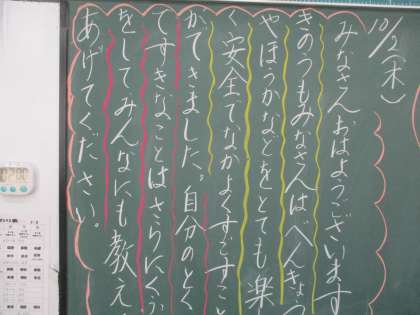 10/2(木)
みなさんおはようございます
きのうもみなさんはべんきょう
やほうかなどをとても楽
く安全でなかよくすごすこと
ができました。自分のとく
てすきなことはさらにくふ
をしてみんなにも教え
あげてください。